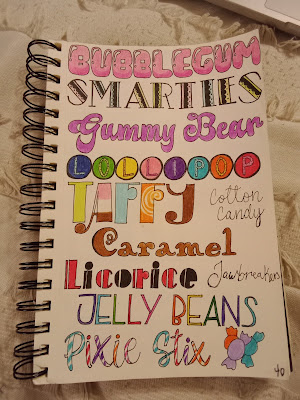 BUBBLEGUM
SMARTIES
Gummy Bear
LOLLIPOP
TAFFY
Cotton
Candy
Caramel
Licorice
Jawbreakers
JELLY BEANS
Pixie Stix
40